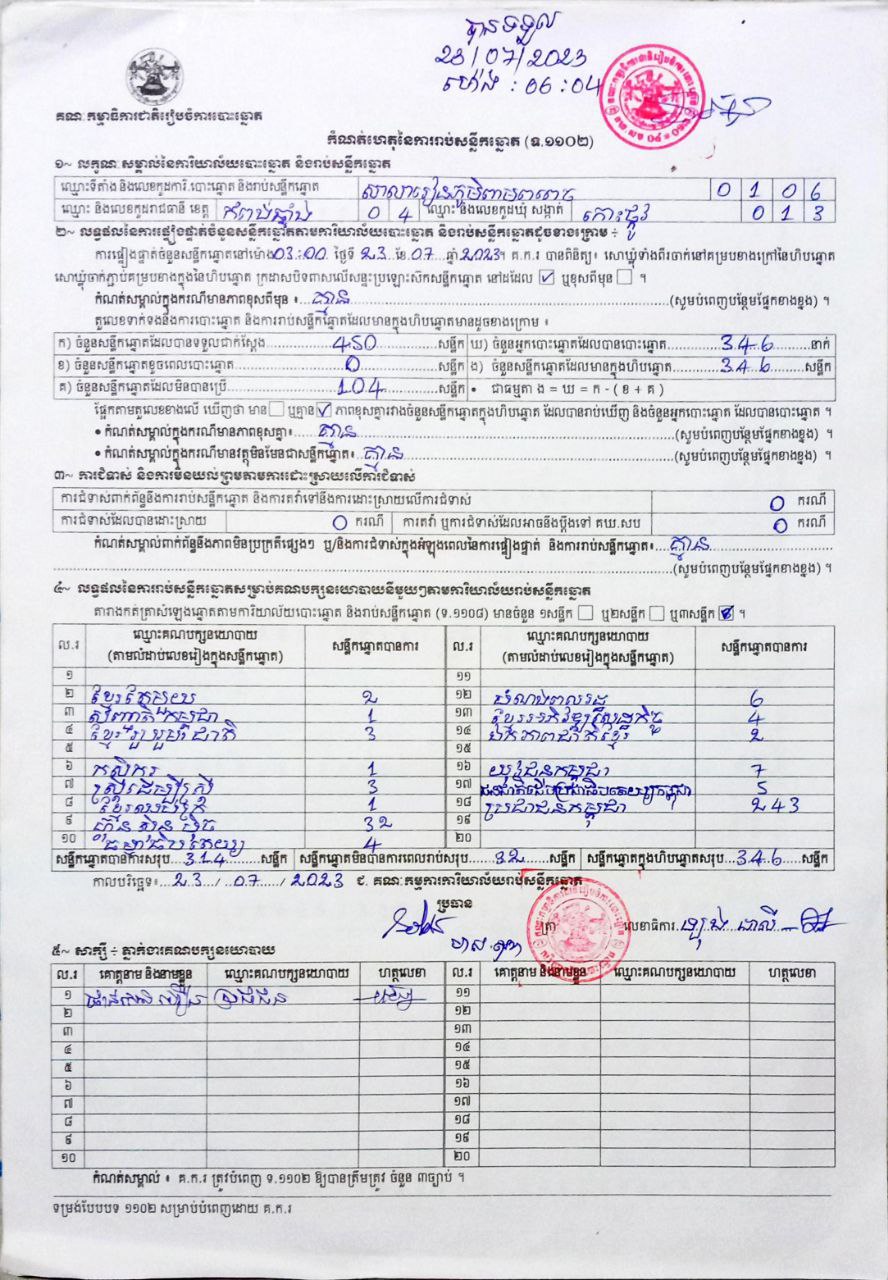 បានទទួល
23/07/2023
ម៉ោង : 06:04
គណៈកម្មាធិការជាតិរៀបចំការបោះឆ្នោត
កំណត់ហេតុនៃការរាប់សន្លឹកឆ្នោត (ទ.១១០២)
១~ លក្ខណៈសម្គាល់នៃការិយាល័យបោះឆ្នោត និងរាប់សន្លឹកឆ្នោត
ឈ្មោះទីតាំង និងលេខកូដការិ.បោះឆ្នោត និងរាប់សន្លឹកឆ្នោត សាលារៀនភូមិ 0 1 0 6
ឈ្មោះ និងលេខកូដរាជធានី ខេត្ត កំពង់ឆ្នាំង 0 4 ឈ្មោះ និងលេខកូដឃុំ សង្កាត់ កោះថ្កូវ 0 1 3
២~ លទ្ធផលនៃការផ្ទៀងផ្ទាត់ចំនួនសន្លឹកឆ្នោតតាមការិយាល័យបោះឆ្នោត និងរាប់សន្លឹកឆ្នោតដូចខាងក្រោម ÷
ការផ្ទៀងផ្ទាត់ចំនួនសន្លឹកឆ្នោតនៅម៉ោង 03:00 ថ្ងៃទី 23 ខែ 07 ឆ្នាំ 2023។ គ.ក.រ បានពិនិត្យ៖ សោឃ្មុំទាំងពីរចាក់នៅគម្របខាងក្រៅនៃហិបឆ្នោត
សោឃ្មុំចាក់ភ្ជាប់គម្របខាងក្នុងនៃហិបឆ្នោត ក្រដាសបិទពាសលើសន្ទះប្រឡោះស៊កសន្លឹកឆ្នោត នៅដដែល ☑ ឬខុសពីមុន ☐ ។
កំណត់សម្គាល់ក្នុងករណីមានភាពខុសពីមុន ៖ គ្មាន (សូមបំពេញបន្ថែមផ្នែកខាងខ្នង) ។
តួលេខទាក់ទងនឹងការបោះឆ្នោត និងការរាប់សន្លឹកឆ្នោតដែលមានក្នុងហិបឆ្នោតមានដូចខាងក្រោម ៖
ក) ចំនួនសន្លឹកឆ្នោតដែលបានទទួលជាក់ស្តែង 450 សន្លឹក ឃ) ចំនួនអ្នកបោះឆ្នោតដែលបានបោះឆ្នោត 346 នាក់
ខ) ចំនួនសន្លឹកឆ្នោតខូចពេលបោះឆ្នោត 0 សន្លឹក ង) ចំនួនសន្លឹកឆ្នោតដែលមានក្នុងហិបឆ្នោត 346 សន្លឹក
គ) ចំនួនសន្លឹកឆ្នោតដែលមិនបានប្រើ 104 សន្លឹក • ជាធម្មតា ង = ឃ = ក - ( ខ + គ )
ផ្អែកតាមតួលេខខាងលើ ឃើញថា មាន ☐ ឬគ្មាន ☑ ភាពខុសគ្នារវាងចំនួនសន្លឹកឆ្នោតក្នុងហិបឆ្នោត ដែលបានរាប់ឃើញ និងចំនួនអ្នកបោះឆ្នោត ដែលបានបោះឆ្នោត ។
• កំណត់សម្គាល់ក្នុងករណីមានភាពខុសគ្នា៖ គ្មាន (សូមបំពេញបន្ថែមផ្នែកខាងខ្នង) ។
• កំណត់សម្គាល់ក្នុងករណីមានវត្ថុមិនមែនជាសន្លឹកឆ្នោត៖ គ្មាន (សូមបំពេញបន្ថែមផ្នែកខាងខ្នង) ។
៣~ ការជំទាស់ និងការមិនយល់ព្រមតាមការដោះស្រាយលើការជំទាស់
ការជំទាស់ពាក់ព័ន្ធនឹងការរាប់សន្លឹកឆ្នោត និងការតវ៉ាទៅនឹងការដោះស្រាយលើការជំទាស់ 0 ករណី
ការជំទាស់ដែលបានដោះស្រាយ 0 ករណី ការតវ៉ា ឬការជំទាស់ដែលអាចនឹងប្តឹងទៅ គឃ.សប 0 ករណី
កំណត់សម្គាល់ពាក់ព័ន្ធនឹងភាពមិនប្រក្រតីផ្សេងៗ ឬ/និងការជំទាស់ក្នុងអំឡុងពេលនៃការផ្ទៀងផ្ទាត់ និងការរាប់សន្លឹកឆ្នោត៖ គ្មាន
(សូមបំពេញបន្ថែមផ្នែកខាងខ្នង) ។
៤~ លទ្ធផលនៃការរាប់សន្លឹកឆ្នោតសម្រាប់គណបក្សនយោបាយនីមួយៗតាមការិយាល័យរាប់សន្លឹកឆ្នោត
តារាងកត់ត្រាសំឡេងឆ្នោតតាមការិយាល័យបោះឆ្នោត និងរាប់សន្លឹកឆ្នោត (ទ.១១០៨) មានចំនួន ១សន្លឹក ☐ ឬ២សន្លឹក ☐ ឬ៣សន្លឹក ☑ ។
ល.រ ឈ្មោះគណបក្សនយោបាយ សន្លឹកឆ្នោតបានការ ល.រ ឈ្មោះគណបក្សនយោបាយ សន្លឹកឆ្នោតបានការ
(តាមលំដាប់លេខរៀងក្នុងសន្លឹកឆ្នោត) (តាមលំដាប់លេខរៀងក្នុងសន្លឹកឆ្នោត)
១ ១១
២ ខ្មែរតែមួយ 2 ១២ សំណង់ពលរដ្ឋ 6
៣ សញ្ជាតិកម្ពុជា 1 ១៣ ខ្មែរអភិវឌ្ឍន៍សេដ្ឋកិច្ច 4
៤ ខ្មែររួបរួមជាតិ 3 ១៤ ឯកភាពជាតិខ្មែរ 2
៥ ១៥
៦ កសិករ 1 ១៦ យុវជនកម្ពុជា 7
៧ ស្រ្តីដើម្បីស្រ្តី 3 ១៧ ជនជាតិដើមប្រជាធិបតេយ្យកម្ពុជា 5
៨ ខ្មែរឈប់ក្រ 1 ១៨ ប្រជាជនកម្ពុជា 243
៩ ហ៊្វុនស៊ិនប៉ិច 32 ១៩
១០ ធម្មាធិបតេយ្យ 4 ២០
សន្លឹកឆ្នោតបានការសរុប 314 សន្លឹក សន្លឹកឆ្នោតមិនបានការពេលរាប់សរុប 32 សន្លឹក សន្លឹកឆ្នោតក្នុងហិបឆ្នោតសរុប 346 សន្លឹក
កាលបរិច្ឆេទ៖ 23 / 07 / 2023 ជ. គណៈកម្មការការិយាល័យរាប់សន្លឹកឆ្នោត
ប្រធាន
ត្រា លេខាធិការ
៥~ សាក្សី ÷ ភ្នាក់ងារគណបក្សនយោបាយ
ល.រ គោត្តនាម និងនាមខ្លួន ឈ្មោះគណបក្សនយោបាយ ហត្ថលេខា ល.រ គោត្តនាម និងនាមខ្លួន ឈ្មោះគណបក្សនយោបាយ ហត្ថលេខា
១ ប្រជាជន ១១
២ ១២
៣ ១៣
៤ ១៤
៥ ១៥
៦ ១៦
៧ ១៧
៨ ១៨
៩ ១៩
១០ ២០
កំណត់សម្គាល់ ៖ គ.ក.រ ត្រូវបំពេញ ទ.១១០២ ឱ្យបានត្រឹមត្រូវ ចំនួន ៣ច្បាប់ ។
ទម្រង់បែបបទ ១១០២ សម្រាប់បំពេញដោយ គ.ក.រ